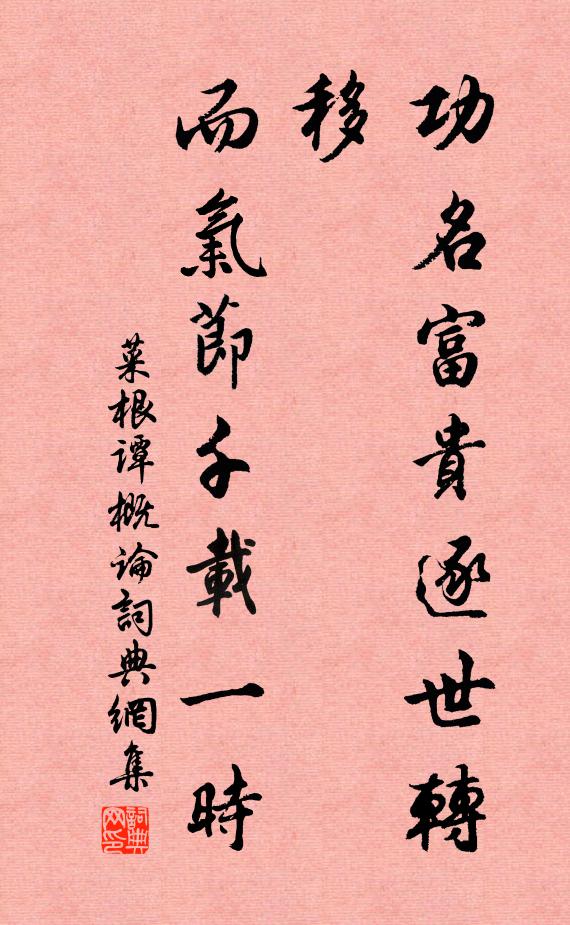 功名富貴逐世轉
移
而氣節千載一時
菜根譚概論詞典網集
詞典网印